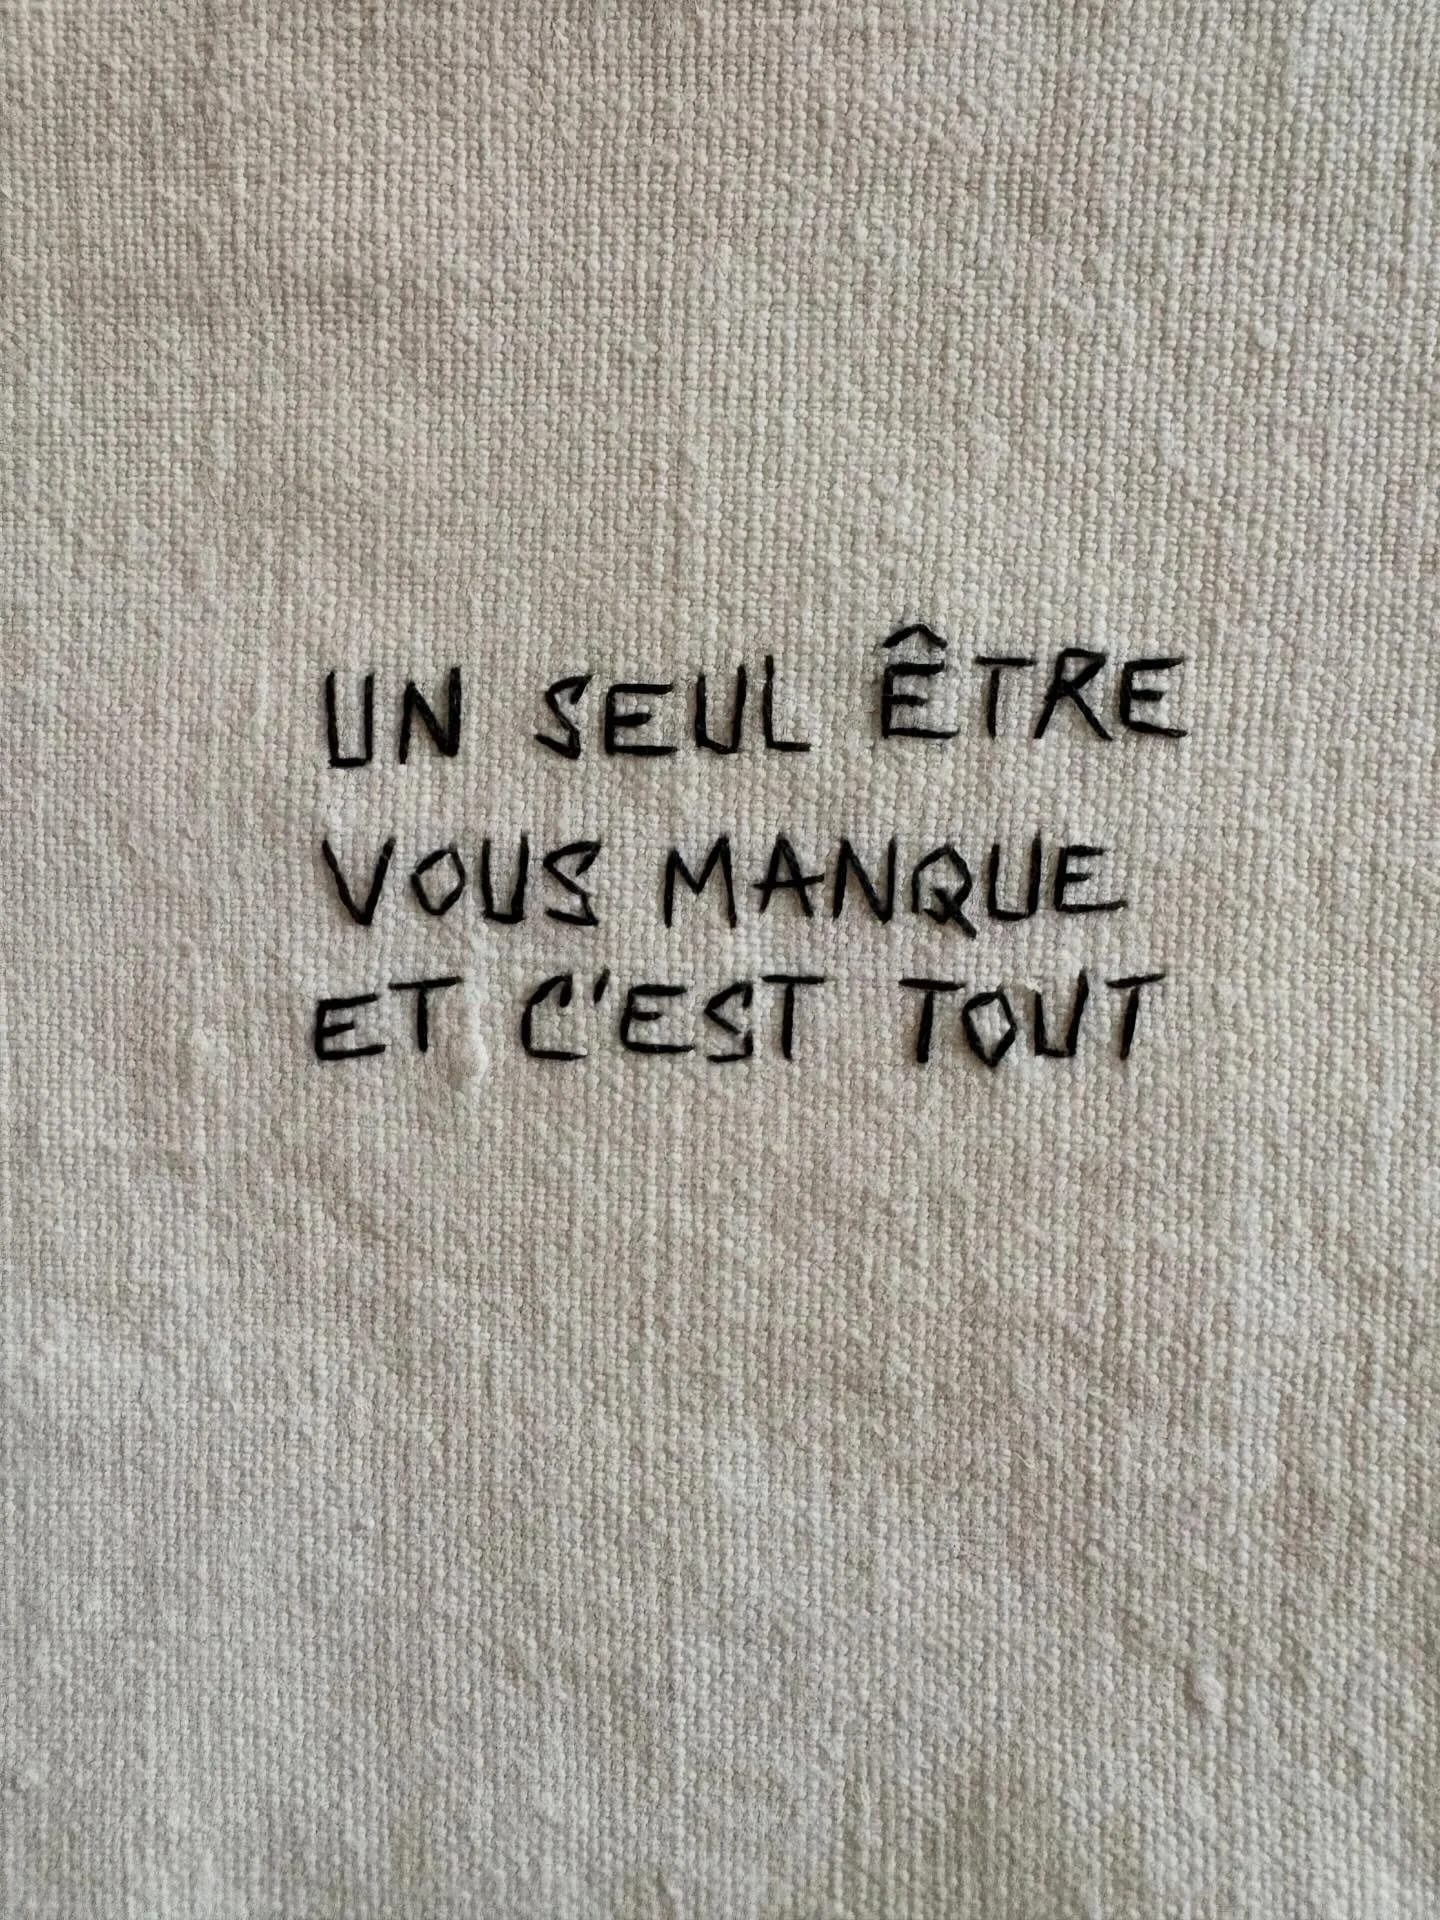 UN SEUL ÊTRE
VOUS MANQUE
ET C'EST TOUT